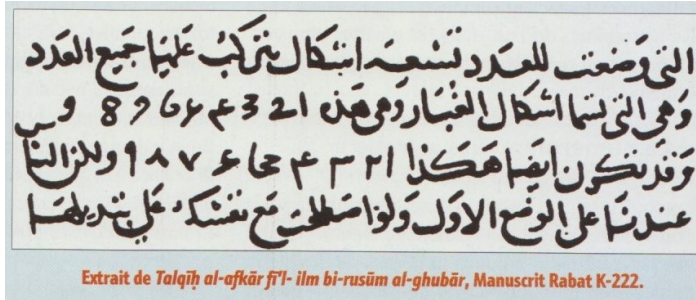 التي وضعت للعدد تسعة اشكال يتركب عليها جميع العدد
وهي التي تسما اشكال الغبار وهي هذه 1 2 3 4 5 6 7 8 9
وقد تكون ايضا هكذا ١ ٢ ٣ ۴ ۵ ۶ ٧ ٨ ٩ ولاكن الناس
عندنا على الوضع الاول ولو اصطلحت مع نفسك على تبديلها
Extrait de Talqīḥ al-afkār fī'l- ilm bi-rusūm al-ghubār, Manuscrit Rabat K-222.